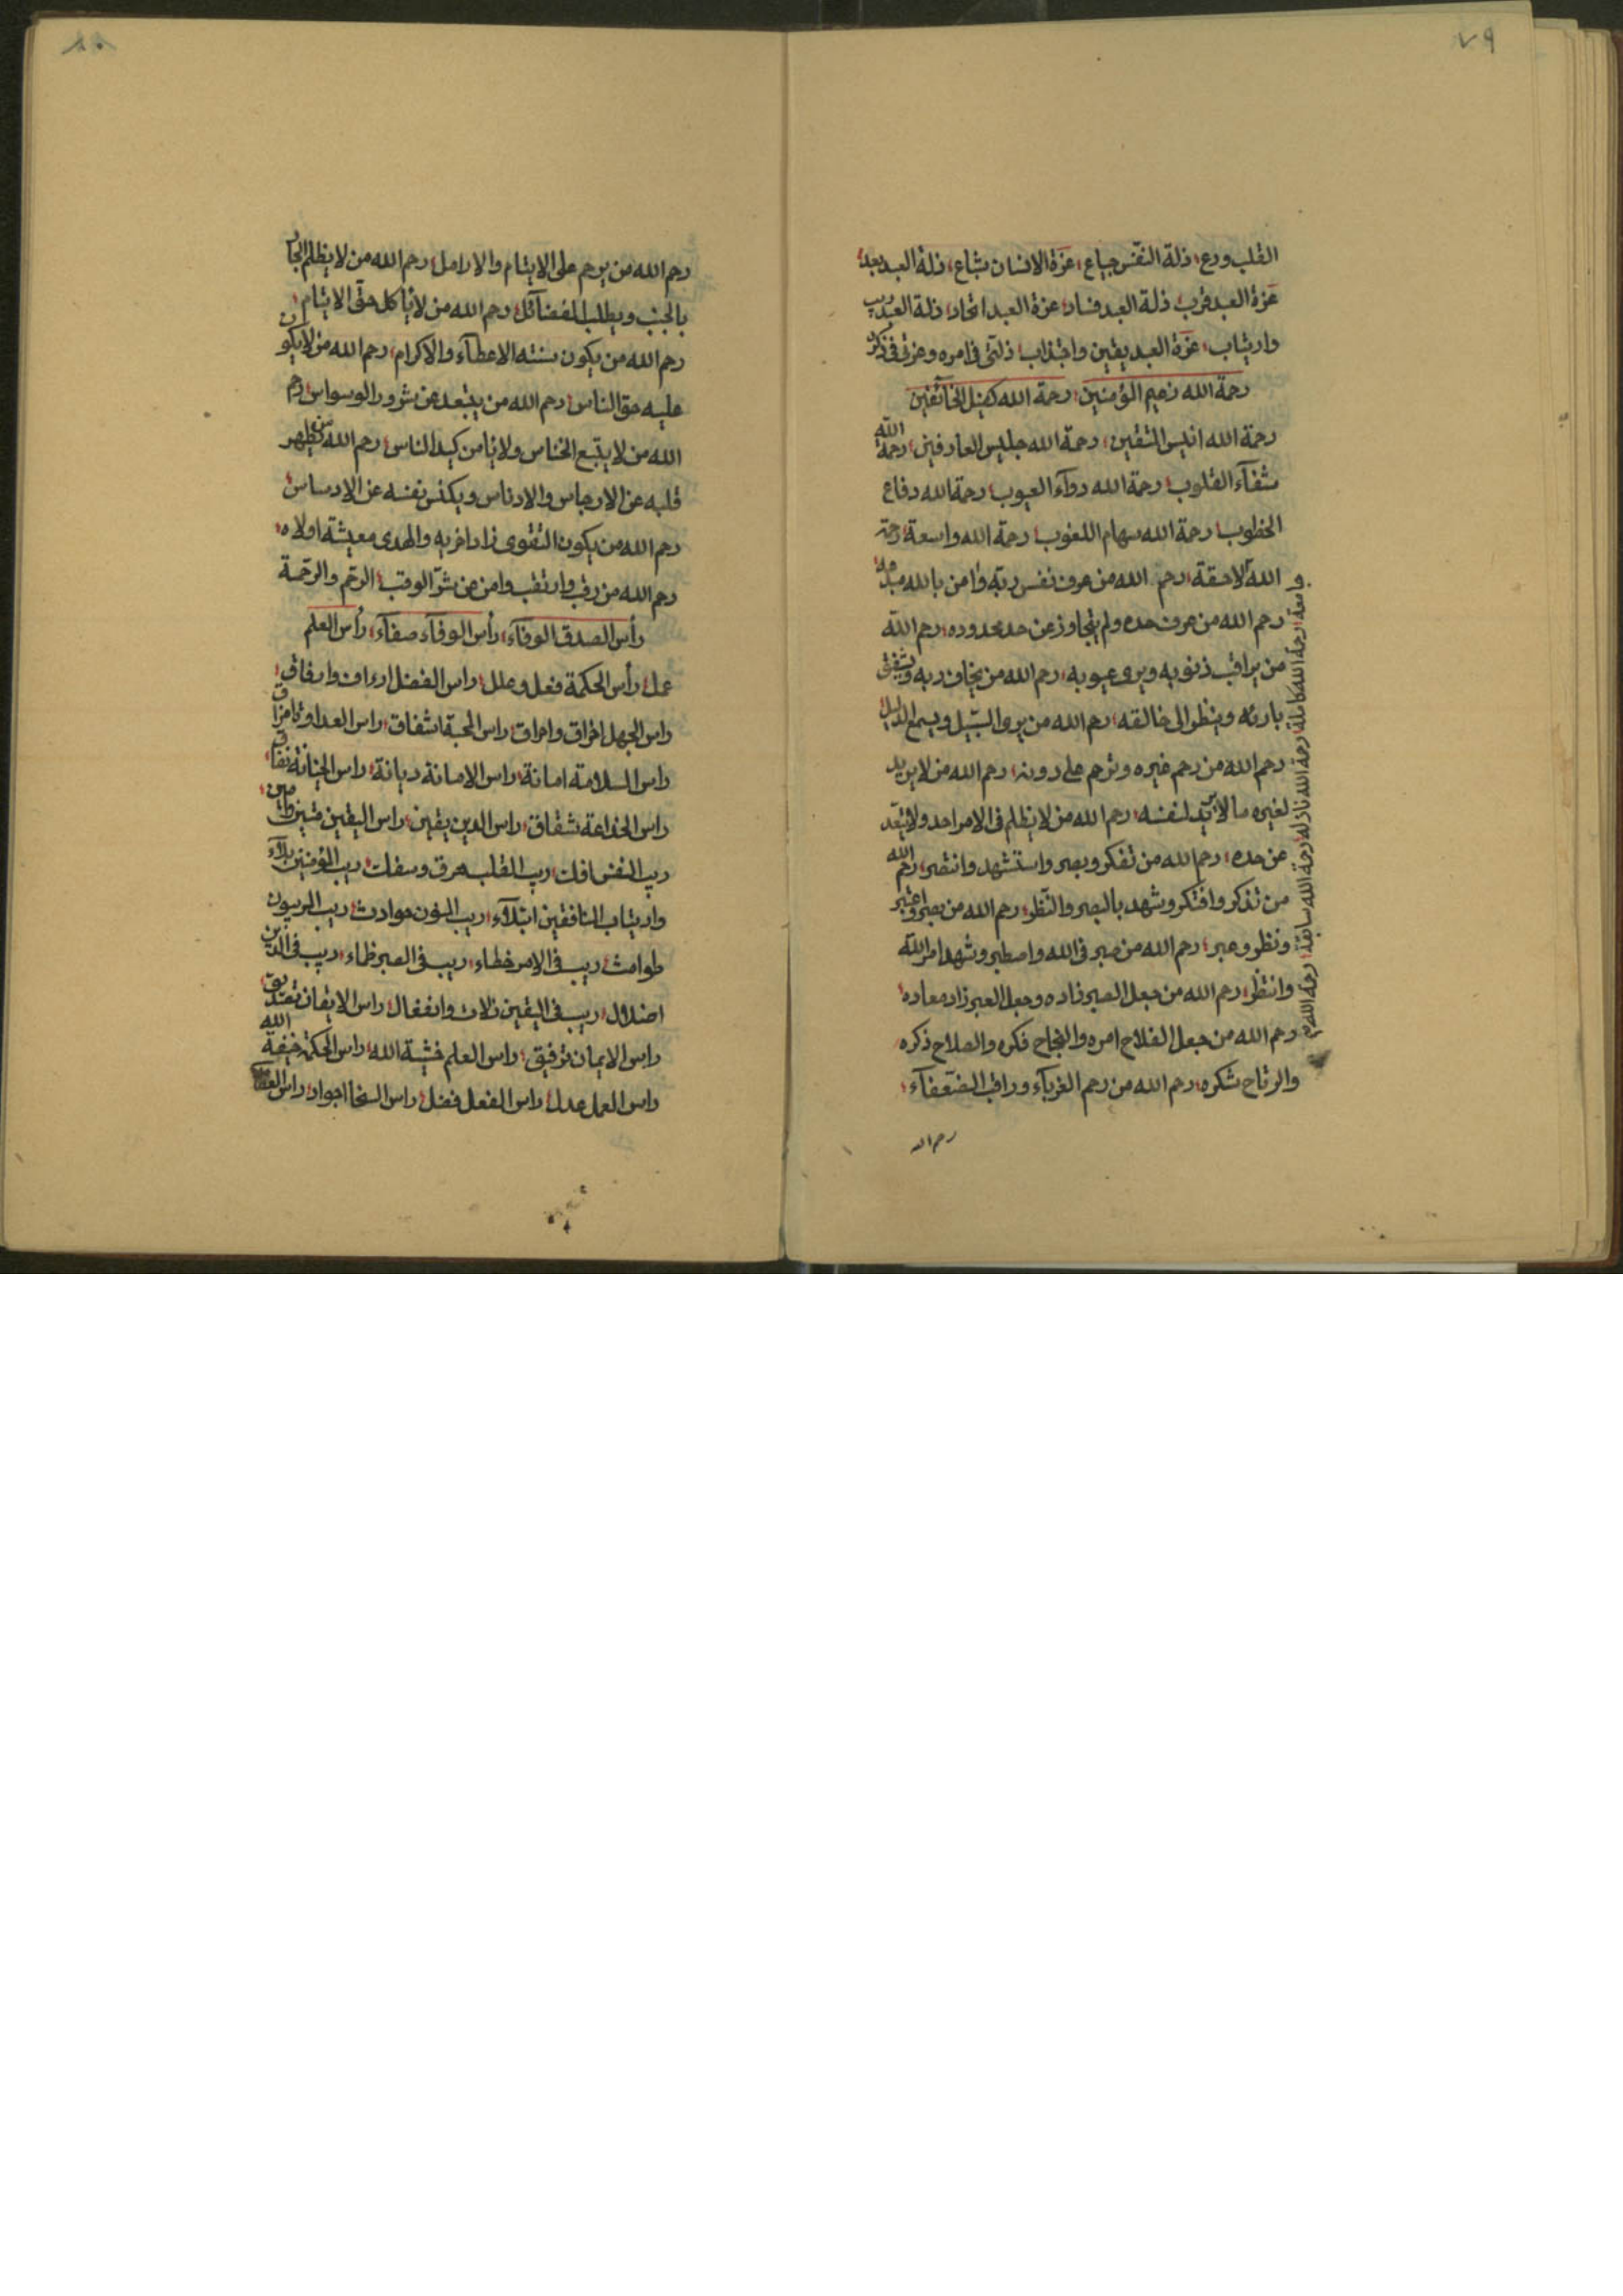 ٧٩
القلب ودع؛ ذلة النفس جياع؛ عزة الانسان شباع؛ ذلة العبد بعد؛
عزة العبد قرب؛ ذلة العبد فساد؛ عزة العبد اتحاد؛ ذلة العبد ريب
وارتياب؛ عزة العبد يقين واجتذاب؛ ذلتى فى امره وعزتى فى ذكره
رحمة الله زعيم المؤمنين؛ رحمة الله كفيل الخائفين
رحمة الله انيس المتقين؛ رحمة الله جليس العارفين؛ رحمة الله
شفآء القلوب؛ رحمة الله دوآء العيوب؛ رحمة الله دفاع
الخطوب؛ رحمة الله سهام اللغوب؛ رحمة الله واسعة؛ رحمة
الله لاحقة؛ رحم الله من عرف نفس ربه وامن بالله
رحم الله من عرف حده ولم يتجاوز عن حد محدوده؛ رحم الله
من يراقب ذنوبه ويرى عيوبه؛ رحم الله من يخاف ربه ويشفق
بارئه وينظر الى خالقه؛ رحم الله من يرو السبيل ويسمع الدليل
رحم الله من رحم غيره وترحم على دونه؛ رحم الله من لا يريد
لغيره ما لا يريد لنفسه؛ رحم الله من لا يظلم فى الامر احد ولا يتعد
عن حده؛ رحم الله من تفكر وبصر واستشهد وانتصر؛ رحم الله
من تذكر وافتكر وشهد بالبصر والنظر؛ رحم الله من بصر واعتبر
ونظر وعبر؛ رحم الله من صبر فى الله واصطبر وشهد امر الله
وانتظر؛ رحم الله من جعل الصبر زاده وجعل الصبر زاد معاده؛
رحم الله من جعل الفلاح امره والنجاح فكره والصلاح ذكره
والرتاح شكره؛ رحم الله من رحم الغربآء وراقب الضعفآء؛
رحم الله
رحمة الله كاملة؛ رحمة الله نازلة؛ رحمة الله سابقة؛ رحمة الله
٨٠
رحم الله من يرحم على الايتام والارامل؛ رحم الله من لا يظلم الجار
بالجنب ويطلب الفضآئل؛ رحم الله من لا يأكل حق الايتام؛
رحم الله من يكون سنته الاعطآء والاكرام؛ رحم الله من لا يكون
عليه حق الناس؛ رحم الله من يبتعد عن شرور الوسواس؛ رحم
الله من لا يتبع الخناس ولا يأمن كيد الناس؛ رحم الله من يطهر
قلبه عن الارجاس والادناس ويكنس نفسه عن الادساس؛
رحم الله من يكون التقوى زاد اخريه والهدى معيشة اولاه؛
رحم الله من رقب وارتقب وامن عن شر الوقب؛ الرحم والرحمة
رأس الصدق الوفآء؛ رأس الوفآء صفآء؛ رأس العلم
عمل؛ رأس الحكمة فعل وعلل؛ راس الفضل ارداف وارفاق؛
راس الجهل اخراق واحراق؛ راس المحبة اشفاق؛ راس العداوة
راس السلامة امانة؛ راس الامانة ديانة؛ راس الخيانة نفاق؛
راس الخداعة شقاق؛ راس الدين يقين؛ راس اليقين متين
ريب النفس افلت؛ ريب القلب عرق وسقلت؛ ريب المؤمنين بلآء
وارتياب المنافقين ابتلآء؛ ريب المنون حوادث؛ ريب الريبون
طوامث؛ ريب فى الامر خطاء؛ ريب فى الصبر ظماء؛ ريب فى الدين
اضلال؛ ريب فى اليقين زلات وانفعال؛ راس الايقان تصديق؛
راس الايمان توفيق؛ راس العلم خشية الله؛ راس الحكمة خيفة الله
راس العمل عدل؛ راس الفعل فضل؛ راس السخا اجواد؛ راس